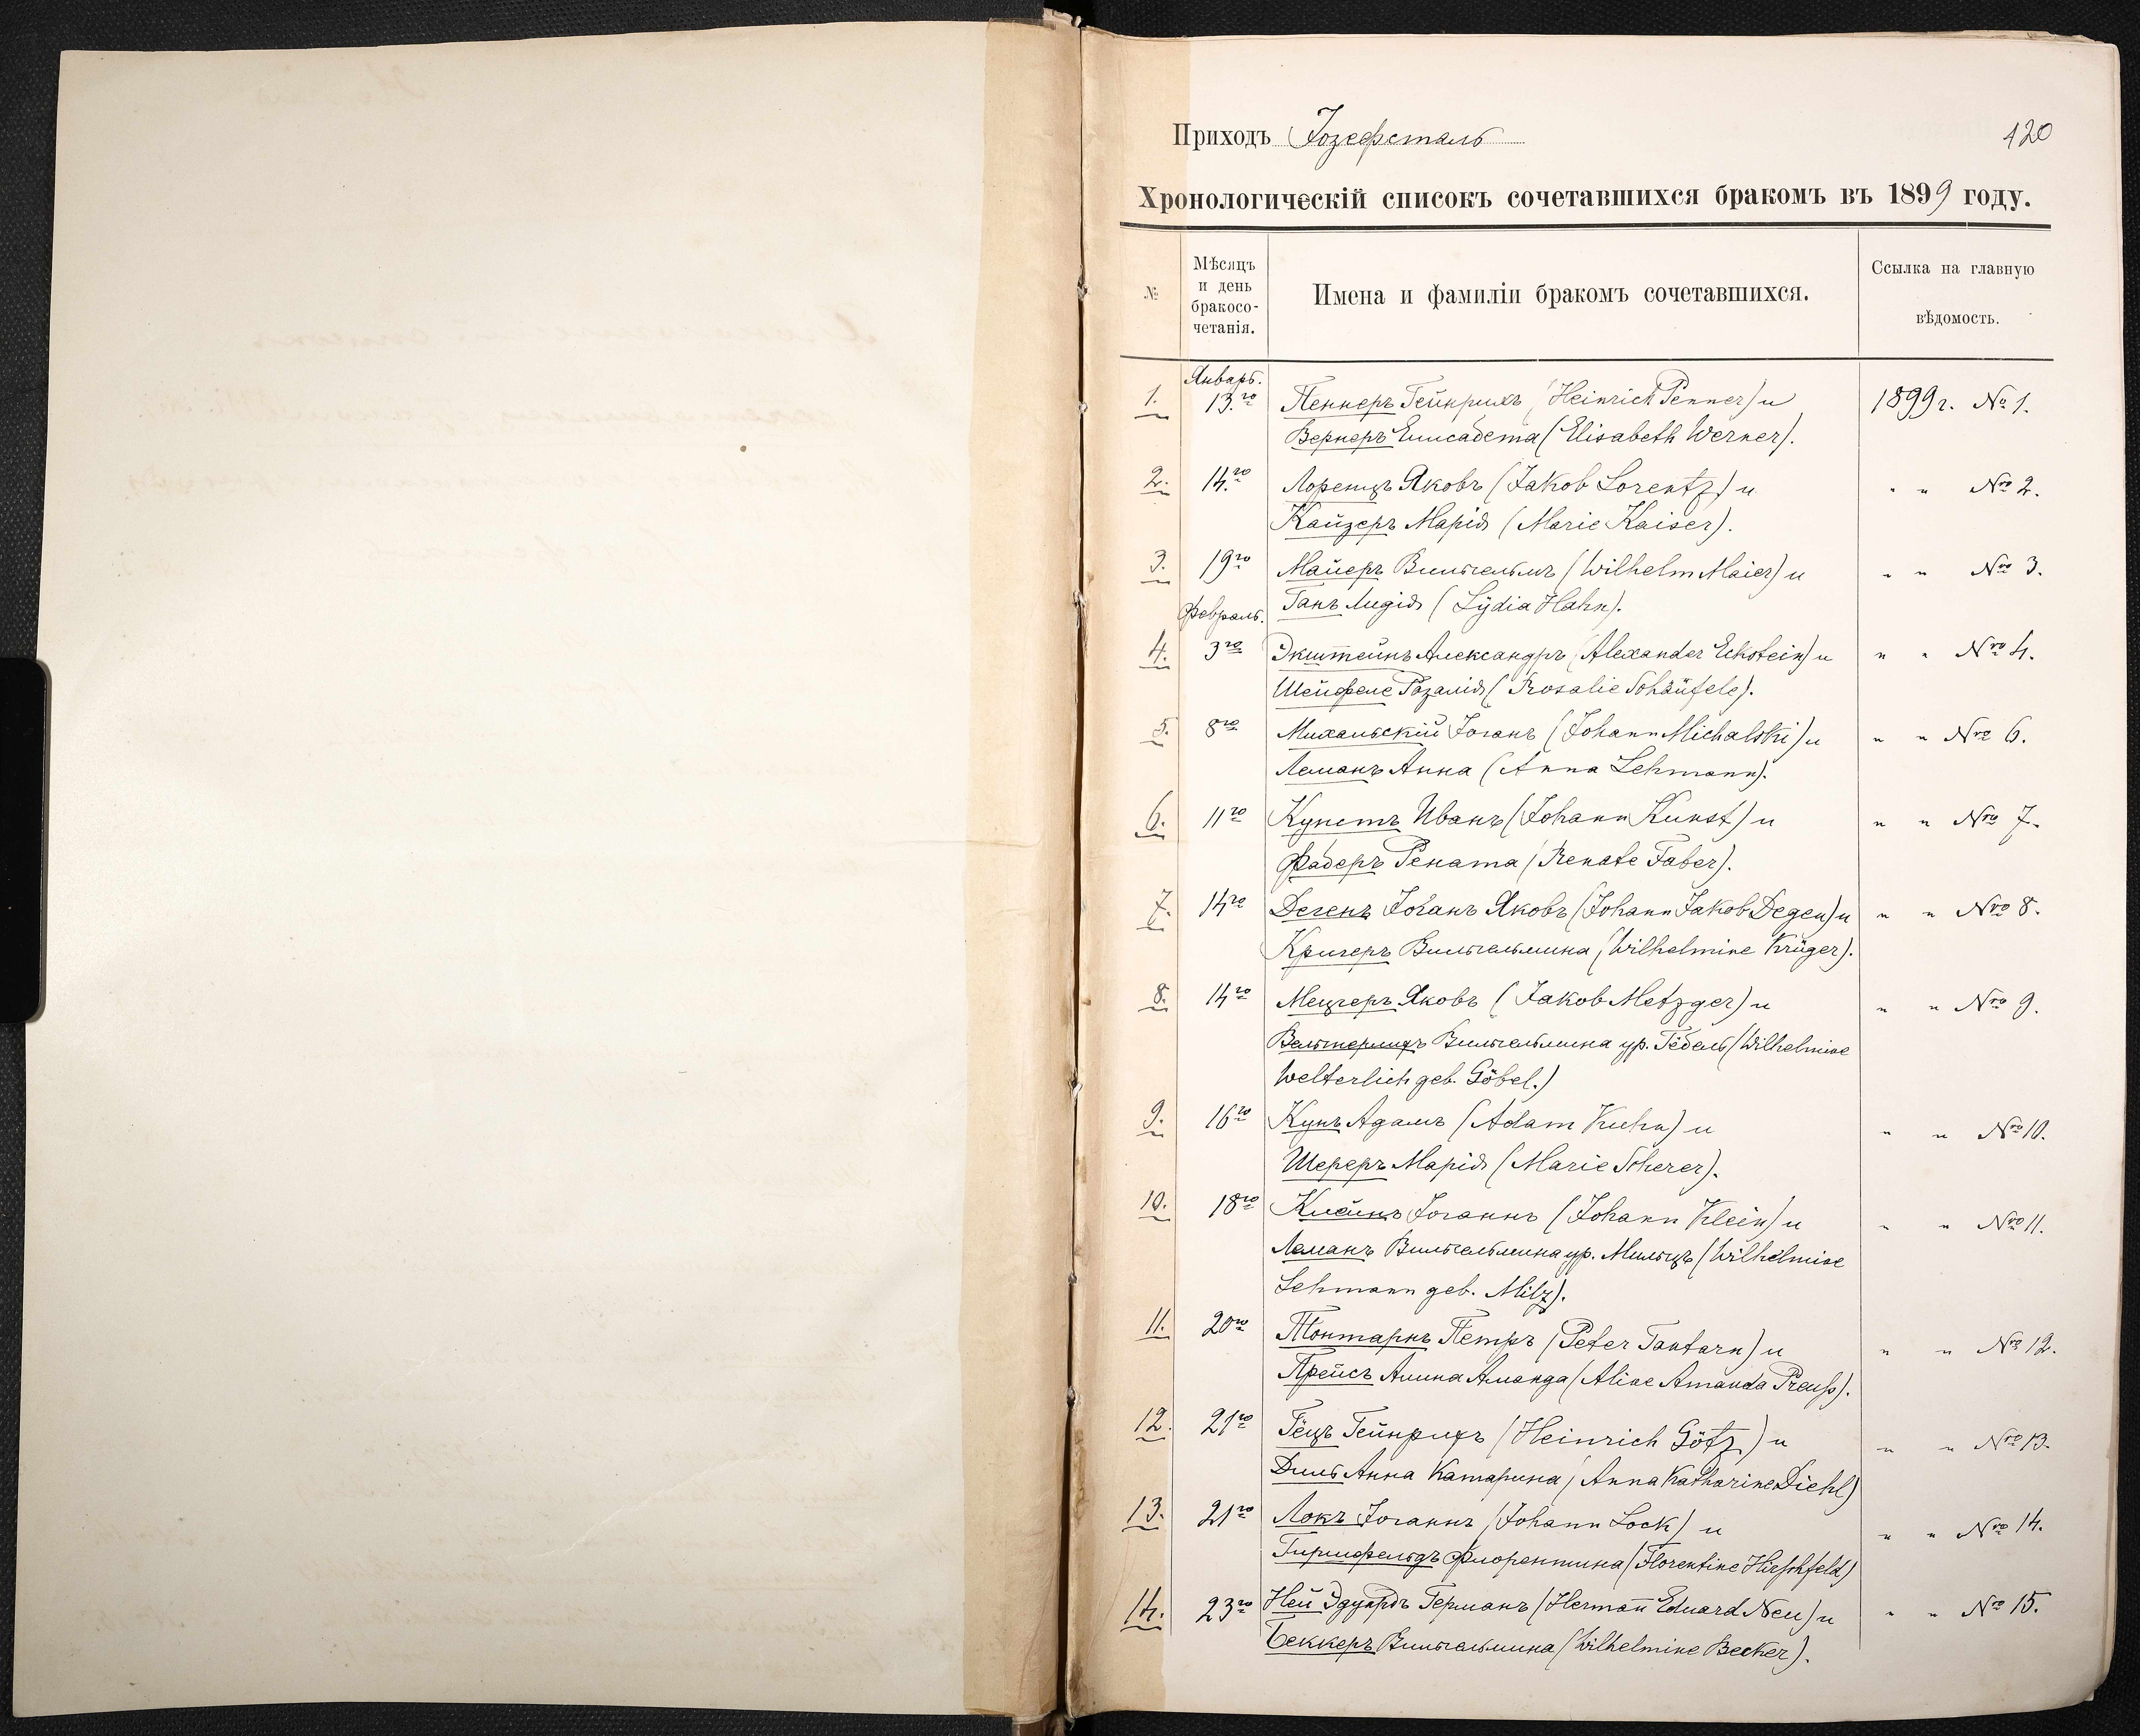 Приходъ Іозефсталь
120
Хронологическій списокъ сочетавшихся бракомъ въ 1899 году.
№
Мѣсяцъ
и день
бракосо-
четанія.
Имена и фамиліи бракомъ сочетавшихся.
Ссылка на главную
вѣдомость.
Январь.
1. 13.го Пеннеръ Гейнрихъ (Heinrich Penner) и 1899 г. № 1.
Вернеръ Елисабета (Elisabeth Werner).
2. 14.го Лоренцъ Яковъ (Jakob Lorentz) и " " Nro 2.
Кайзеръ Марія (Marie Kaiser).
3. 19го Майеръ Вильгельмъ (Wilhelm Maier) и " " Nro 3.
Ганъ Лидія (Lydia Hahn).
Февраль.
4. 3го Экштейнъ Александръ (Alexander Eckstein) и " " Nro 4.
Шейфеле Розалія (Rosalie Schäufele).
5. 8го Михальскій Іоганъ (Johann Michalski) и " " Nro 6.
Леманъ Анна (Anna Lehmann).
6. 11го Кунстъ Иванъ (Johann Kunst) и " " Nro 7.
Фаберъ Рената (Renate Faber).
7. 14го Дегенъ Іоганъ Яковъ (Johann Jakob Degen) и " " Nro 8.
Кригеръ Вильгельмина (Wilhelmine Krüger).
8. 14го Мецгеръ Яковъ (Jakob Metzger) и " " Nro 9.
Вельтерлихъ Вильгельмина ур. Гёбель (Wilhelmine
Welterlich geb. Göbel.)
9. 16го Кунъ Адамъ (Adam Kuhn) и " " Nro 10.
Шереръ Марія (Marie Scherer).
10. 18го Клейнъ Іоганнъ (Johann Klein) и " " Nro 11.
Леманъ Вильгельмина ур. Мильцъ (Wilhelmine
Lehmann geb. Milz).
11. 20го Тонтарнъ Петръ (Peter Tontarn) и " " Nro 12.
Прейсъ Алина Аманда (Aline Amanda Preuß).
12. 21го Гёцъ Гейнрихъ (Heinrich Götz) и " " Nro 13.
Диль Анна Катарина (Anna Katharine Diehl)
13. 21го Локъ Іоганнъ (Johann Lock) и " " Nro 14.
Гиршфельдъ Флорентина (Florentine Hirschfeld)
14. 23го Ней Эдуардъ Германъ (Hermañ Eduard Neu) и " " Nro 15.
Беккеръ Вильгельмина (Wilhelmine Becker).